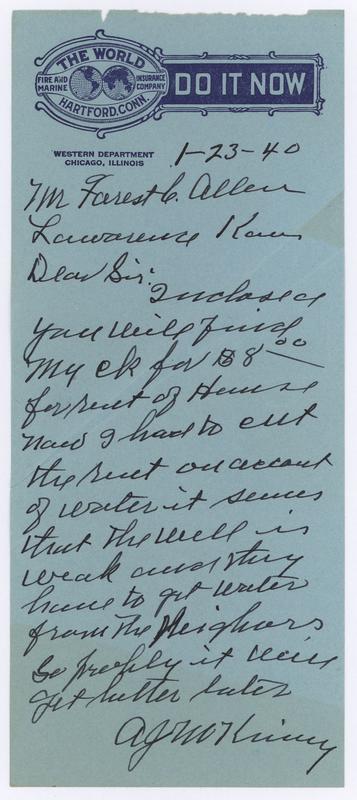 THE WORLD
FIRE AND MARINE
INSURANCE COMPANY
HARTFORD, CONN.
DO IT NOW
WESTERN DEPARTMENT
CHICAGO, ILLINOIS
1-23-40
Mr Forest C. Allen
Lawarence Kans
Dear Sir:
Inclosed
you will find
my ck for $8.00
for rent of House
now I had to cut
the rent on account
of water it seems
that the well is
weak and they
have to get water
from the Neighors
So probly it will
get better later
A J McKinney